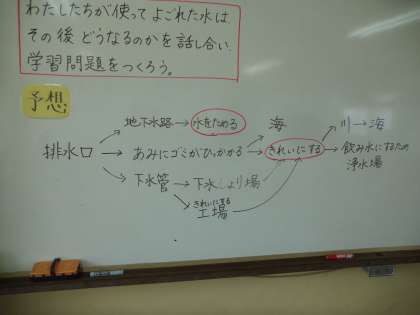 わたしたちが使ってよごれた水は
その後どうなるのかを話し合い、
学習問題をつくろう。
予想
地下水路→水をためる
海
川→海
排水口→あみにゴミがひっかかる→きれいにする→飲み水にするための
浄水場
下水管→下水しょり場
きれいにする
工場